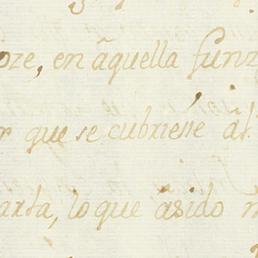 oze, en aquella funz
r que se cubriesse al
arta, lo que à sido